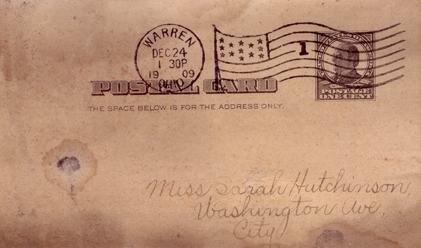 WARREN
DEC 24
1 30P
19 09
OHIO
1
POSTAL CARD
THE SPACE BELOW IS FOR THE ADDRESS ONLY.
POSTAGE
ONE CENT
Miss Sarah Hutchinson,
Washington Ave.
City